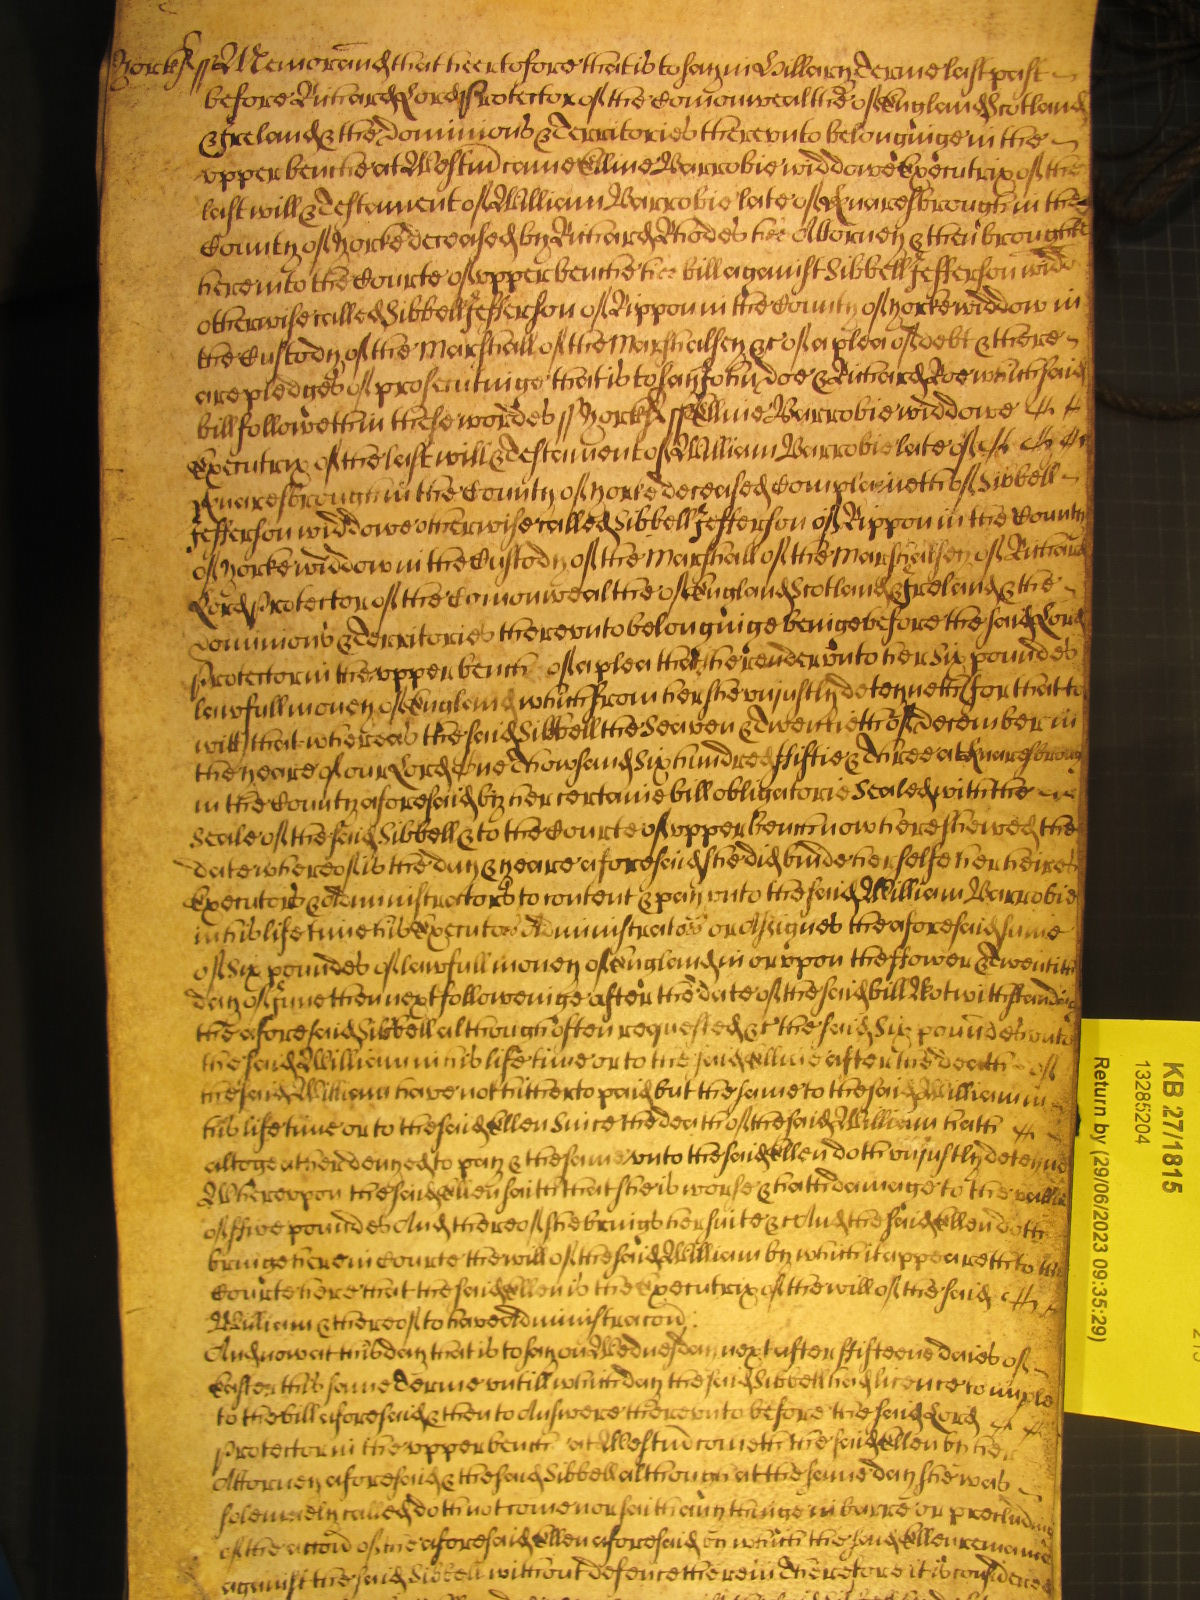 Yorks ss Memorand that heertofore that is to say in Hillary Terme last past
before Richard Lord Protector of the Comonwealthe of England Scotland
& Ireland & the dominions & Territories therevnto belonginge in the
vpper benche at Westm came Elline Barrobie widdowe Executrix of the
last will & Testament of William Barrobie late of Knaresbrough in the
County of Yorke deceased by Richard Rhodes her Attorney & then brought
here into the Courte of vpper benche her bill against Sibbell Jefferson widd
otherwise called Sibbell Jefferson of Rippon in the County of Yorke widdow in
the Custody of the Marshall of the Marshalsey &c of a plea of debt & there
are pledges of prosecutinge that is to say John doe & Richard Roe which said
bill followeth in these wordes ss Yorks ss Elline Barrobie widdowe
Executrix of the last will & Testament of William Barrobie late of
Knaresbrough in the County of Yorke deceased Complaineth of Sibbell
Jefferson widdowe otherwise called Sibbell Jefferson of Rippon in the County
of Yorke widdow in the Custody of the Marshall of the Marshallsey of Richard
Lord Protector of the Comonwealthe of England Scotland & Ireland & the
dominions & Territories therevnto belonginge beinge before the said Lord
Protector in the vpper bench of a plea that she render vnto her Six poundes
lawfull money of England which from her she vniustly deteyneth for that to
witt that whereas the said Sibbell the Seaven & Twentieth of december in
the yeare of our Lord One Thowsand Six hundred ffiftie & Three at Knaresbrough
in the County aforesaid by her certaine bill obligatorie Sealed with the
Seale of the said Sibbell & to the Courte of vpper bench now here shewed the
date whereof is the day & yeare aforesaid she did binde her selfe her heires
Executors & Administrators to content & pay vnto the said William Barrobie
in his life time his Executors Administrators or Assignes the aforesaid sume
of Six poundes of lawfull money of England in or vpon the ffower & Twentith
day of June then next followeinge after the date of the said bill Notwithstandinge
the aforesaid Sibbell although often requested &c the said Six poundes vnto
the said William in his life time or to the said Elline after the death of
the said William have not hitherto paid but the same to the said William in
his life time or to the said Ellen Since the death of the said William hath
altogeather denyed to pay & the same vnto the said Ellen doth vniustly deteyne
Wherevpon the said Ellen saith that she is worse & hath damage to the vallue
of ffive poundes And thereof she brings her suite &c And the said Ellen doth
bringe here in Courte the will of the said William by which it appeareth to the
Courte here that the said Ellen is the Executrix of the will of the said
William & thereof to have Administracon
And now at this day that is to say on Wednesday next after ffifteene daies of
Easter this same Terme vntill which day the said Sibbell had licence to imple
to the bill aforesaid & then to Answere therevnto before the said Lord
Protector in the vpper bench at Westm cometh the said Ellen by her
Attorney aforesaid & the said Sibbell although at the same day she was
solemnely called doth not come nor saith any thinge in barre or precludinge
of the accon of the aforesaid Ellen aforesaid by which the said Ellen remaine
against the said Sibbell without defence therein Therefore it is considered
KB 27/1815
13285204
Return by (29/06/2023 09:35:29)